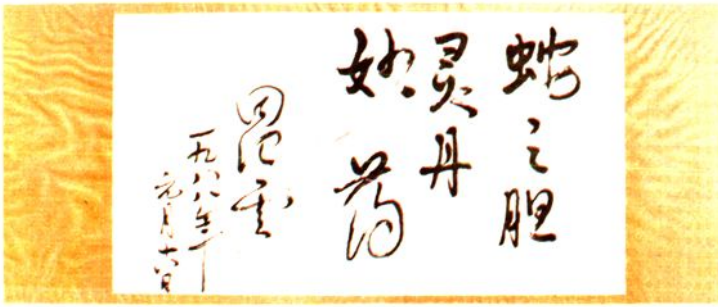 蛇之胆
灵丹
妙药
一九八八年
元月十六日